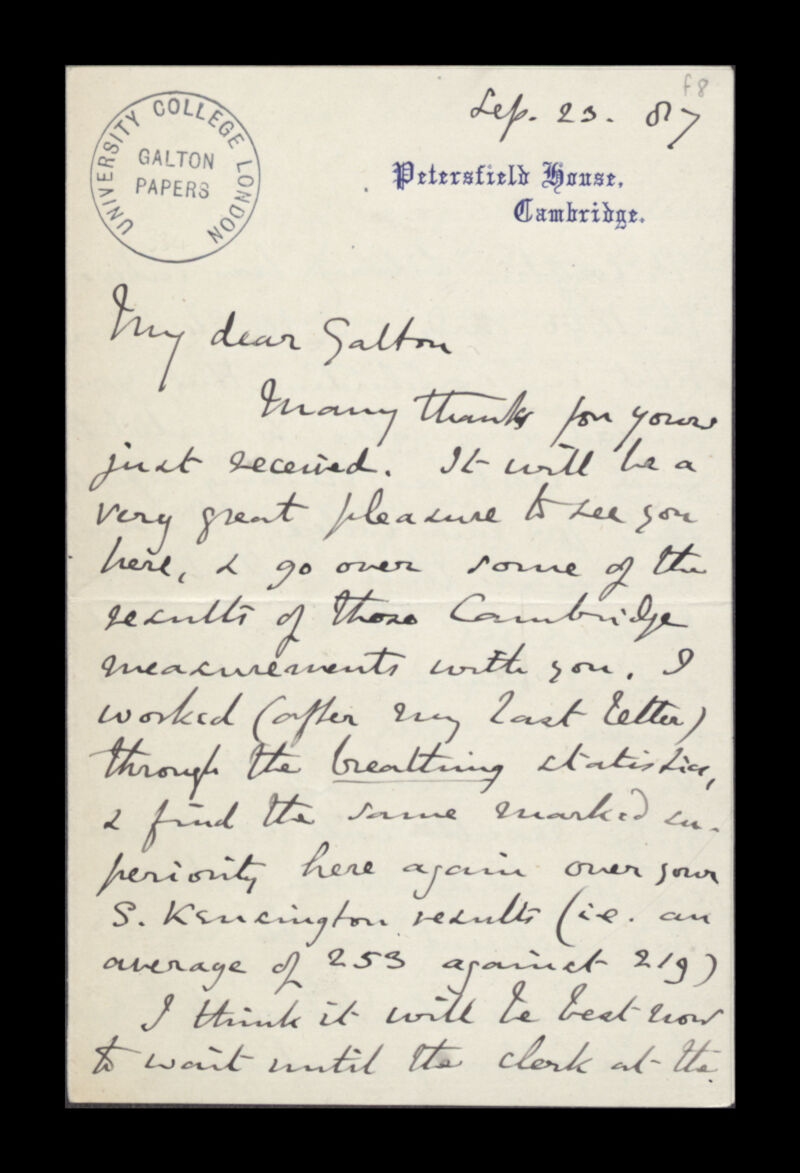 f8
Sep. 23. 87
UNIVERSITY COLLEGE LONDON
GALTON
PAPERS
Petersfield House,
Cambridge.
My dear Galton
Many thanks for yours
just received. It will be a
very great pleasure to see you
here, & go over some of the
results of those Cambridge
measurements with you. I
worked (after my last letter)
through the breathing statistics,
& find the same marked su-
periority here again over your
S. Kensington results (i.e. an
average of 253 against 219)
I think it will be best now
to wait until the clerk at the